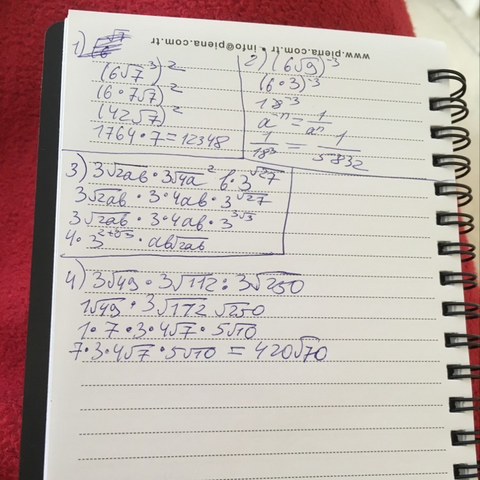 www.piena.com.tr • info@piena.com.tr
1)
(6√7³)²
(6·7√7)²
(42√7)²
1764·7=12348
2) (6√9)⁻³
(6·3)⁻³
18⁻³
a⁻ⁿ=1/aⁿ
1/18³ = 1/5832
3) 3√2ab·3√4a² b·3^√27
3√2ab·3·4ab·3^√27
3√2ab·3·4ab·3^3√3
4·3^2+3√3·ab√2ab
4) 3√49·3√112:3√250
1√49·3√112 √250
1·7·3·4√7·5√10
7·3·4√7·5√10 = 420√70